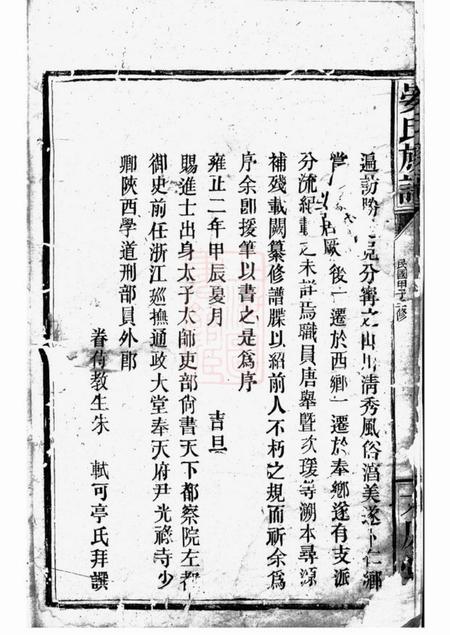 遍訪勝
分寧之山川清秀風俗淳美遂卜仁鄉
居厥後一遷於西鄉一遷於奉鄉遂有支派
分流紀載之未詳焉職員唐舉暨次瑗等溯本尋源
補殘載闕纂修譜牒以紹前人不朽之規而祈余爲
序余卽援筆以書之是爲序
雍正二年甲辰夏月 吉旦
賜進士出身太子太師吏部尙書天下都察院左都
御史前任浙江巡撫通政大堂奉天府尹光祿寺少
卿陝西學道刑部員外郎
眷侍教生朱 軾可亭氏拜譔
晏氏族譜
民國甲子修